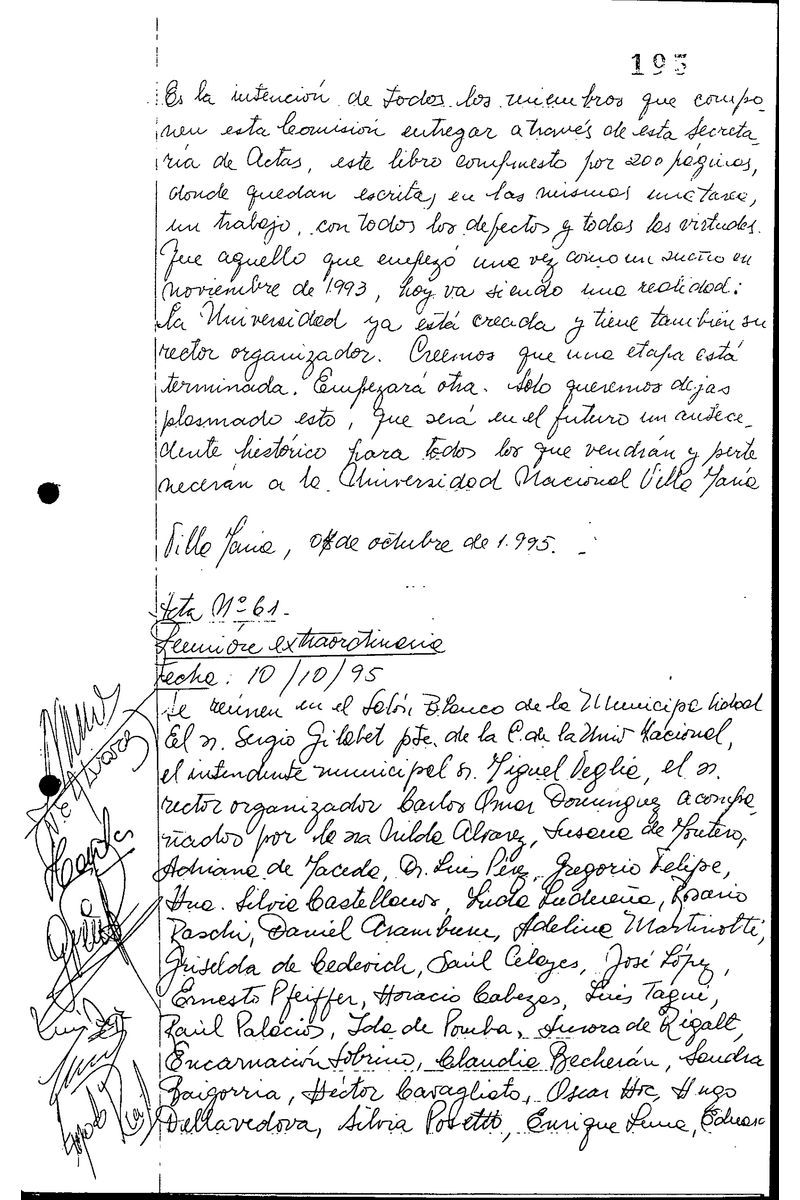 195
Es la intención de todos los miembros que compo-
nen esta Comisión entregar a través de esta Secreta-
ría de Actas, este libro compuesto por 200 páginas,
donde quedan escritas en las mismas una tarea,
un trabajo, con todos los defectos y todas las virtudes.
Fue aquello que empezó una vez como un sueño en
noviembre de 1993, hoy va siendo una realidad:
La Universidad ya está creada y tiene también su
rector organizador. Creemos que una etapa está
terminada. Empezará otra. Sólo queremos dejar
plasmado esto, que será en el futuro un antece-
dente histórico para todos los que vendrán y perte
necerán a la Universidad Nacional Villa María
Villa María, de octubre de 1.995.
Acta Nº 61-
Reunión extraordinaria
Fecha: 10/10/95
Se reúnen en el Salón Blanco de la Municipalidad
El sr. Sergio Gilabet pte. de la C. de la Univ Nacional,
el intendente municipal sr. Miguel Veglia, el sr.
rector organizador Carlos Omar Domínguez acompa-
ñados por la sra Nilda Alvarez, Susana de Montero,
Adriana de Maceda, Dr. Luis Pérez, Gregorio Felipe,
Hna. Silvia Castellanos, Lucía Ludueña, Rosario
Raschi, Daniel Aramburu, Adelina Martinotti,
Griselda de Cederich, Saúl Celayes, José López,
Ernesto Pfeiffer, Horacio Cabezas, Luis Tagui,
Raúl Palacios, Ida de Pomba, Aurora de Rigalt,
Encarnación Sobrino, Claudia Becherán, Sandra
Baigorria, Héctor Cavagliato, Oscar Hoc, Hugo
Dellavedova, Silvia Posetto, Enrique Luna,